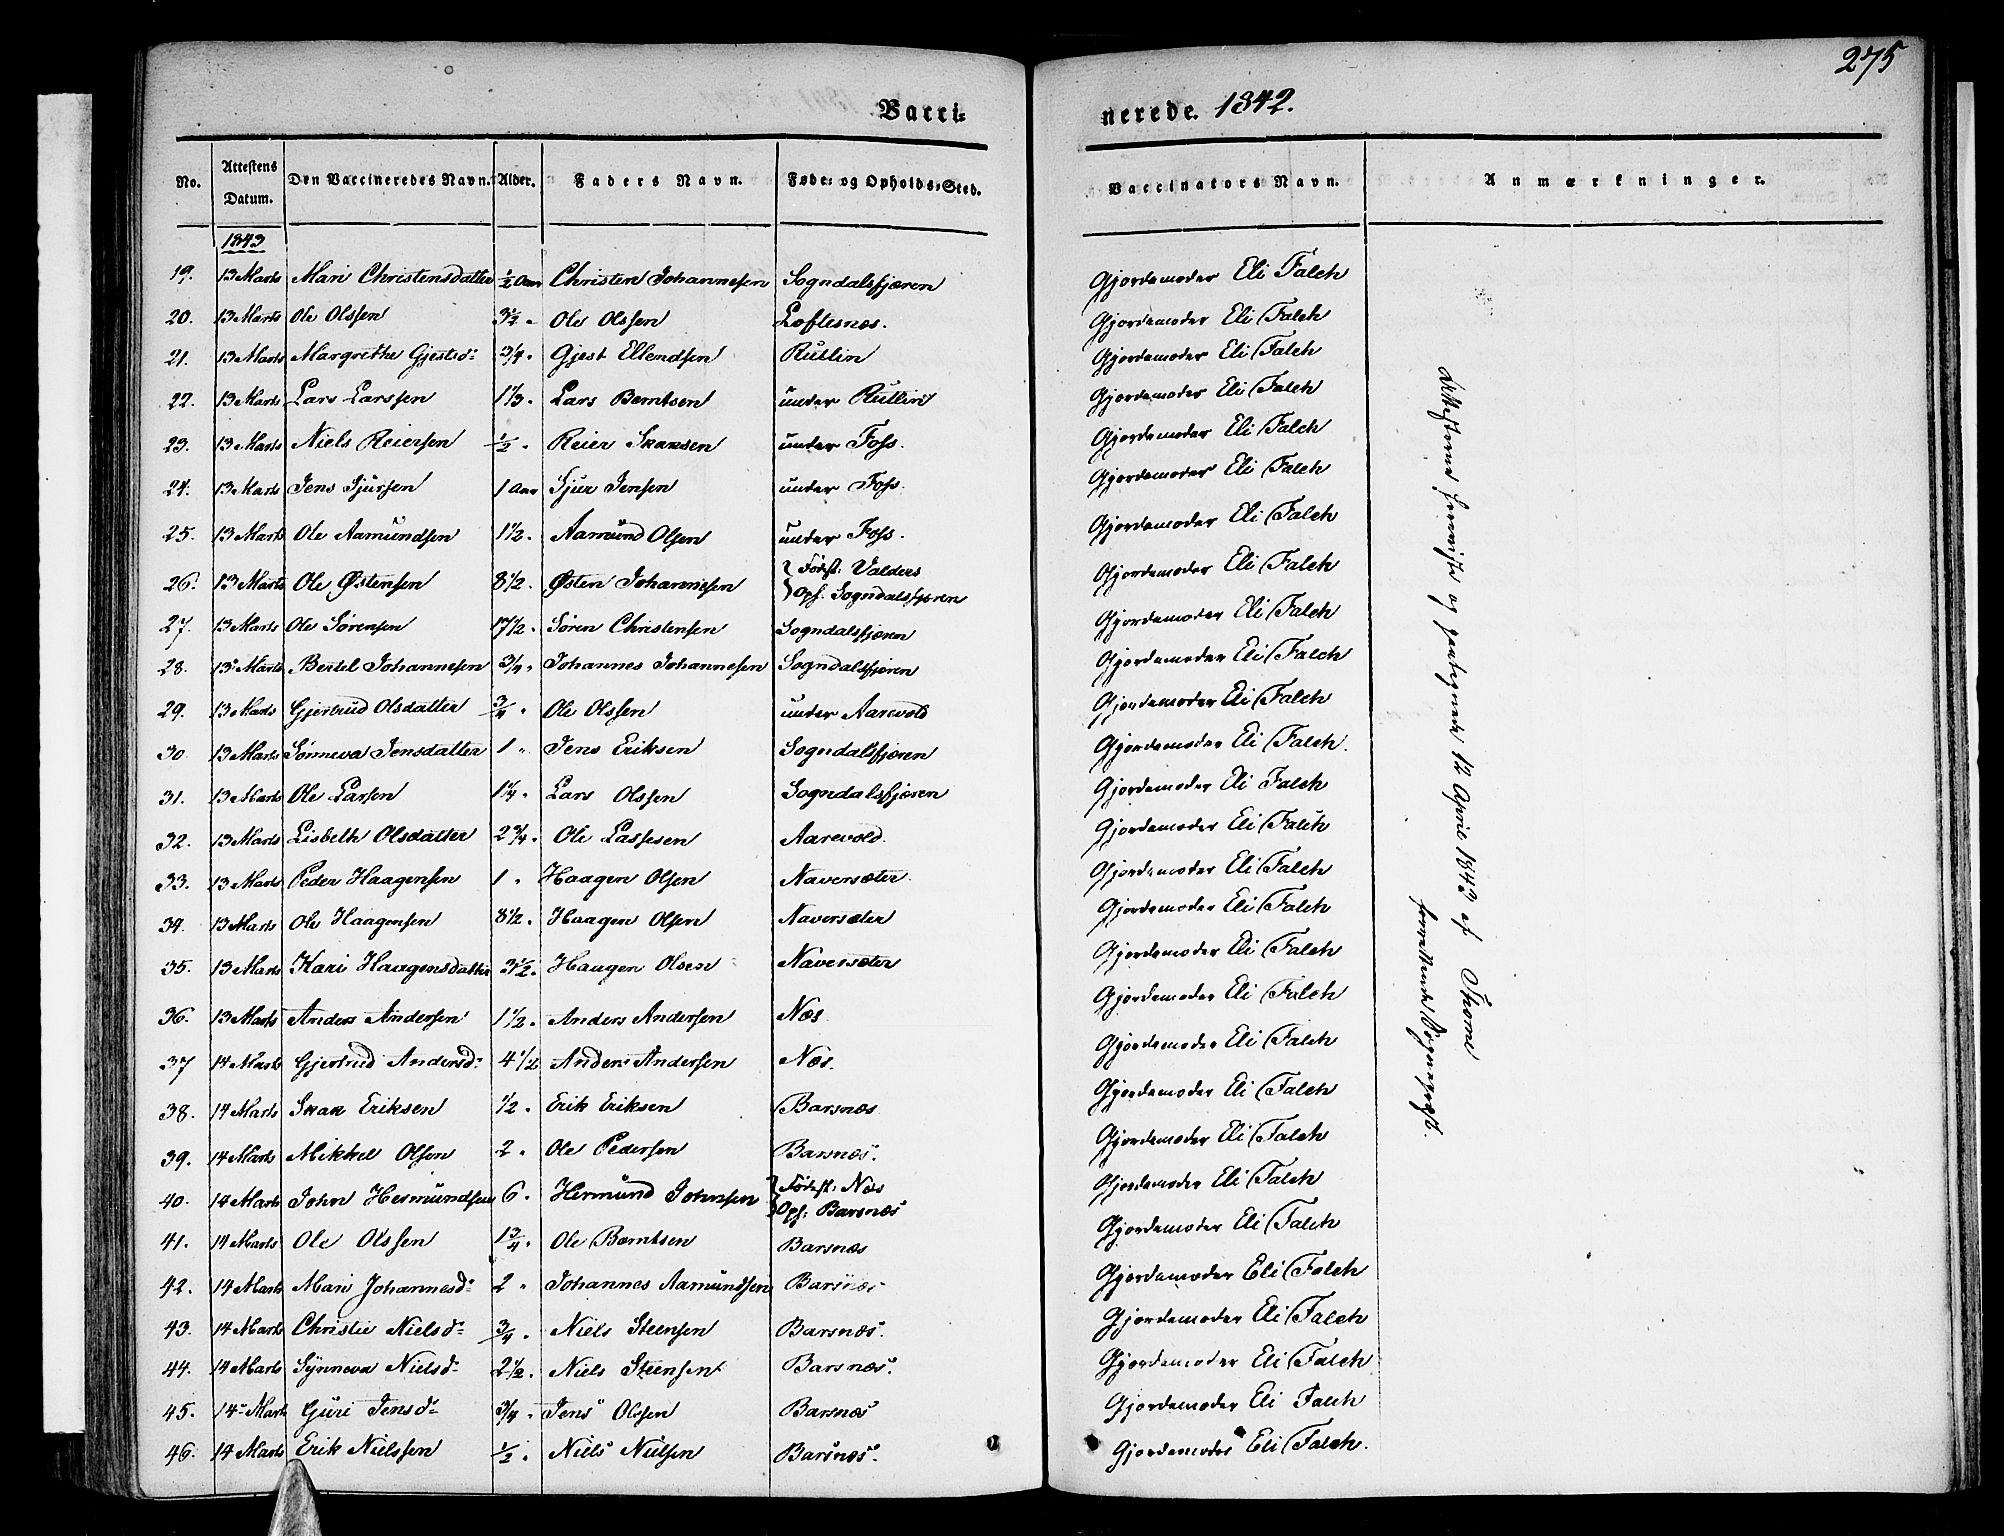 275
Vacci=
nerede. 1842.
No. Attestens Datum. Den Vaccineredes Navn. Alder. Faders Navn. Føde= og Opholds=Sted. Vaccinators Navn. Anmærkninger.
1843
19. 13 Marts Mari Christensdatter 1/2 Aar Christen Johannesen Sogndalsfjæren Gjordemoder Eli Falch
20. 13 Marts Ole Olssen 3 1/2 " Ole Olssen Loftesnæs. Gjordemoder Eli Falch
21. 13 Marts Margrethe Gjestsd: 3/4 " Gjest Ellendsen Rutlin Gjordemoder Eli Falch
22. 13 Marts Lars Larssen 1 1/3 " Lars Berntsen under Rutlin Gjordemoder Eli Falch
23. 13 Marts Niels Reiersen 1/2 " Reier Skaksen under Foss. Gjordemoder Eli Falch
24. 13 Marts Jens Sjursen 1 Aar Sjur Jensen under Foss. Gjordemoder Eli Falch
25. 13 Marts Ole Aamundsen 1 1/2 " Aamund Olsen under Foss. Gjordemoder Eli Falch
26. 13 Marts Ole Østensen 8 1/2 " Østen Johannesen Fødest: Valders Oph. Sogndalsfjæren Gjordemoder Eli Falch
27. 13 Marts Ole Sørensen 17 1/2 " Søren Christensen Sogndalsfjæren Gjordemoder Eli Falch
28. 13 Marts Bertel Johannesen 3/4 " Johannes Johannesen Sogndalsfjæren Gjordemoder Eli Falch
29. 13 Marts Gjertrud Olsdatter 3/4 " Ole Olssen under Aarevold Gjordemoder Eli Falch
30. 13 Marts Sønneva Jensdatter 1 " Jens Eriksen Sogndalsfjæren Gjordemoder Eli Falch.
31. 13 Marts Ole Larsen 1 1/4 " Lars Olssen Sogndalsfjæren Gjordemoder Eli Falch
32. 13 Marts Lisbeth Olsdatter 2 3/4 " Ole Lassesen Aarevold. Gjordemoder Eli Falch
33. 13 Marts Peder Haagensen 1 " Haagen Olsen Naversæter. Gjordemoder Eli Falch
34. 13 Marts Ole Haagensen 8 1/2 " Haagen Olsen Naversæter Gjordemoder Eli Falch
35. 13 Marts Kari Haagensdatter 3 1/2 " Haagen Olsen Naversæter Gjordemoder Eli Falch
36. 13 Marts Anders Andersen 1 1/2 " Anders Andersen Næs. Gjordemoder Eli Falch
37 14 Marts Gjertrud Andersd: 4 1/2 Anders Andersen Næs. Gjordemoder Eli Falch
38. 14 Marts Skak Eriksen 1/2 " Erik Eriksen Barsnæs. Gjordemoder Eli Falch
39. 14 Marts Mikkel Olsen 2 " Ole Pedersen Barsnæs. Gjordemoder Eli Falch
40. 14 Marts John Hermundsen 6 " Hermund Johnsen Fødest: Næs Oph: Barsnæs Gjordemoder Eli Falch
41. 14 Marts Ole Olssen 1 3/4 " Ole Berntsen Barsnæs Gjordemoder Eli Falch
42. 14 Marts Mari Johannesd: 2 " Johannes Aamundsen Barsnæs Gjordemoder Eli Falch
43. 14 Marts Christie Nielsd: 3/4 " Niels Steensen Barsnæs. Gjordemoder Eli Falch
44. 14 Marts Synneva Nielsd: 2 1/2 " Niels Steensen Barsnæs. Gjordemoder Eli Falch
45. 14 Marts Guri Jensd: 3/4 " Jens Olssen Barsnæs Gjordemoder Eli Falch
46. 14 Marts Erik Nielssen 1/2 " Niels Nielsen Barsnæs. Gjordemoder Eli Falch.
Attesterne og 12 April 1843 af Thorne
forrettende Sogneprest.